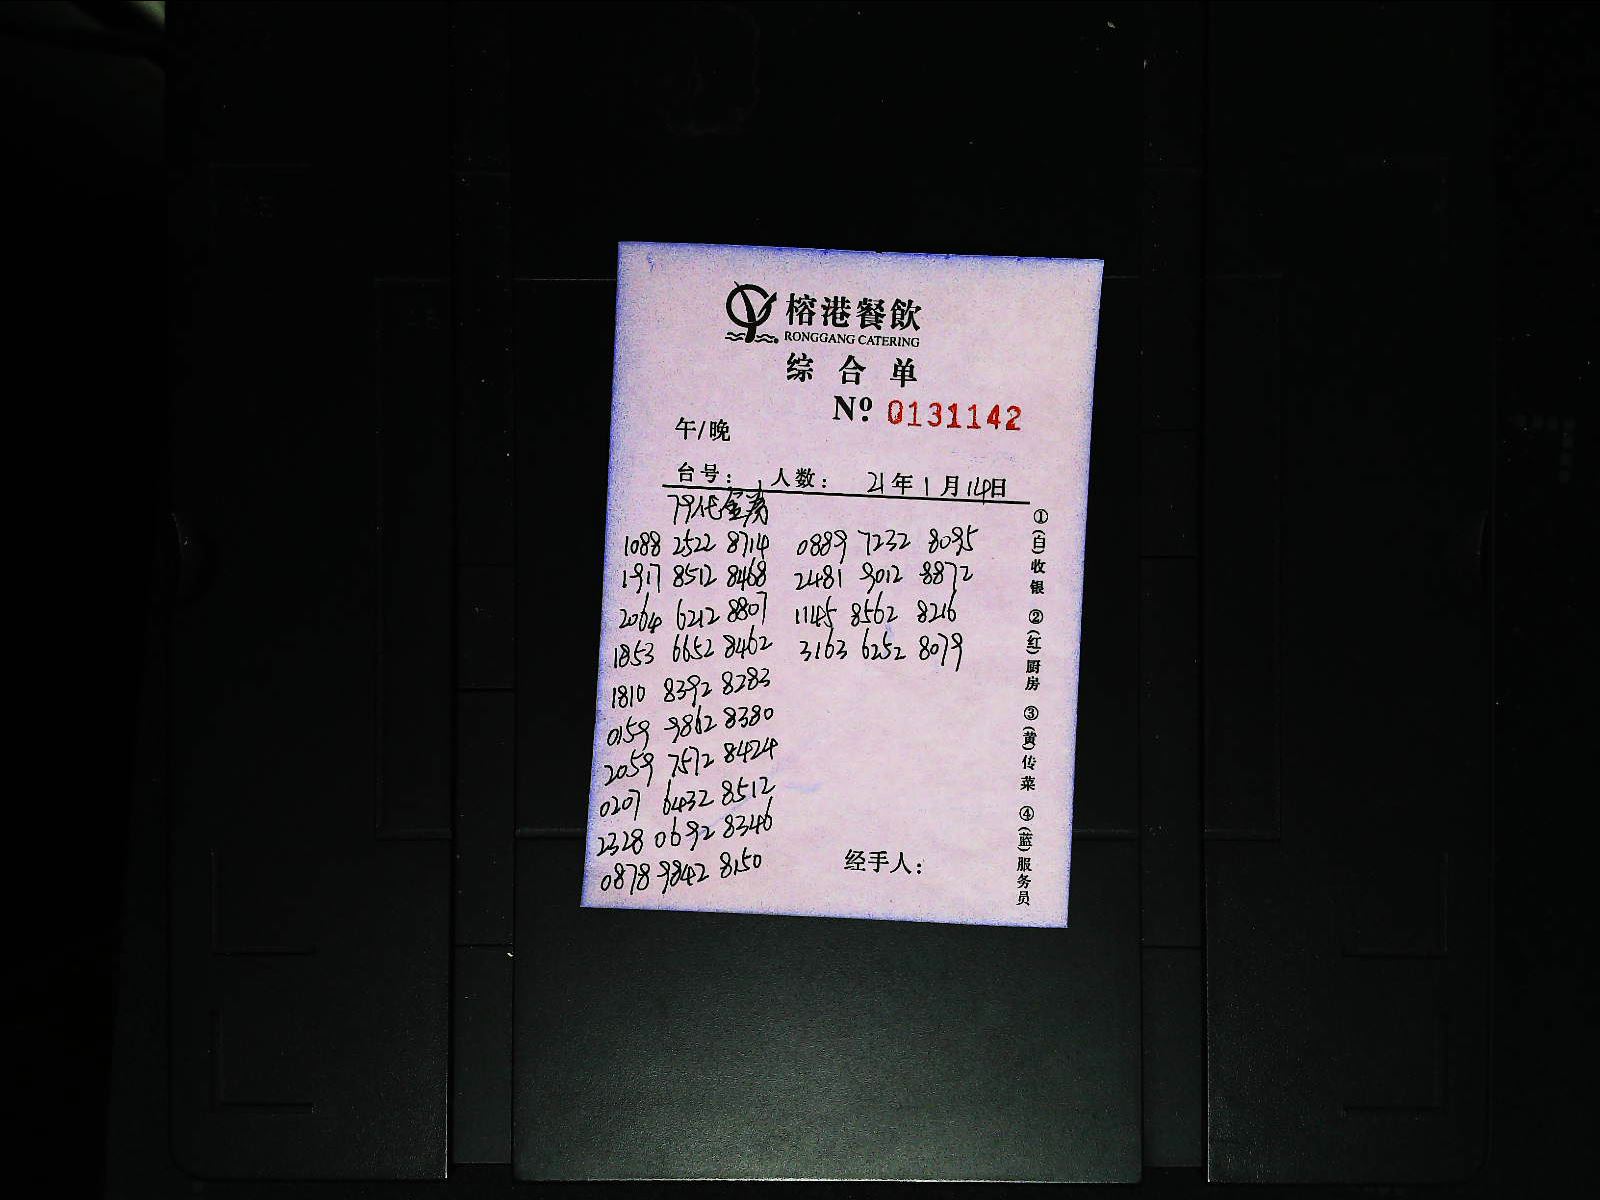 榕港餐飲
RONGGANG CATERING
综合单
Nº 0131142
午/晚
台号： 人数： 21年1月14日
79代金券
1088 2522 8714 0889 7232 8095
1917 8512 8468 2481 9012 8872
2064 6212 8807 1145 8562 8216
1853 6652 8462 3163 6252 8079
1810 8392 8283
0159 9862 8380
2059 7572 8424
0207 6432 8512
2328 0692 8346
0878 9842 8150
经手人：
①(白)收银 ②(红)厨房 ③(黄)传菜 ④(蓝)服务员